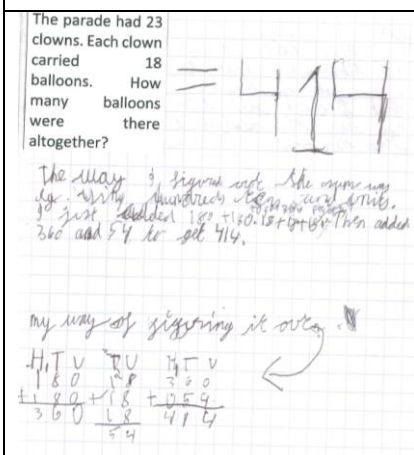 The parade had 23
clowns. Each clown
carried 18
balloons. How
many balloons
were there
altogether?
= 414
The way I figured out the sum was
by using hundreds tens and units.
I just added 180 + 180. 18+18+18. Then added
360 and 54 to get 414.
my way of figuring it out
H T U T U H T U
1 8 0 1 8 3 6 0
+ 1 8 0 + 1 8 + 0 5 4
3 6 0 1 8 4 1 4
5 4